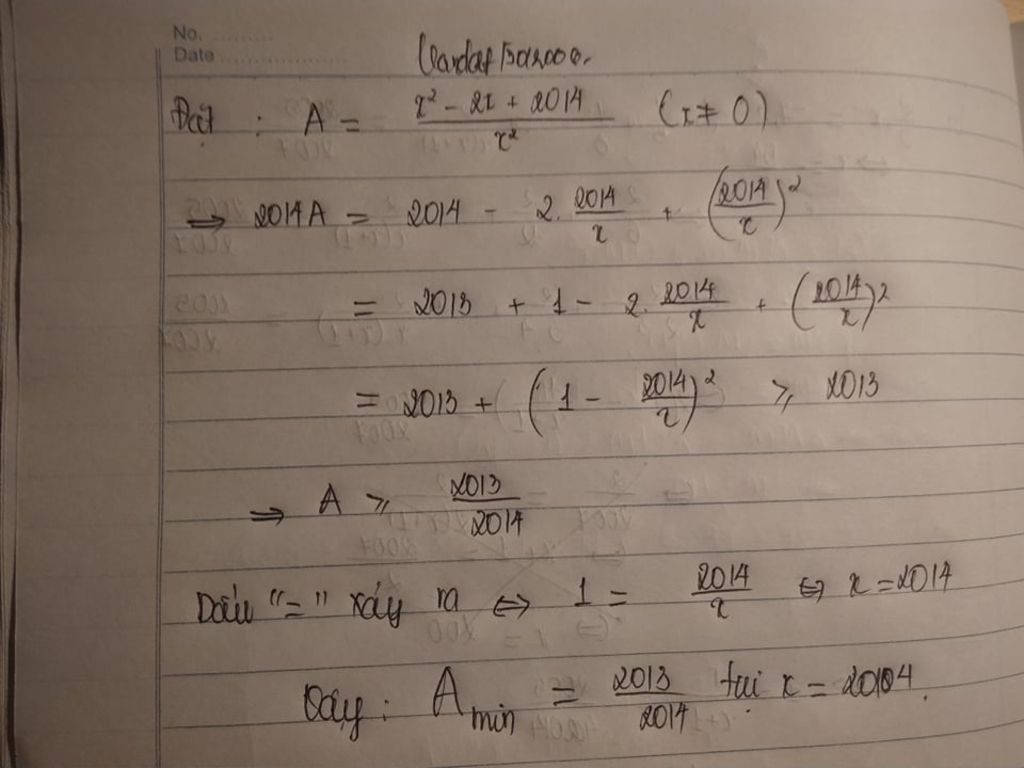 No. ...........
Date .....................
Vardaf15012000.
Đặt : A = \frac{x² - 2x + 2014}{x²} (x ≠ 0)
⇒ 2014A = 2014 - 2. \frac{2014}{x} + (\frac{2014}{x})²
= 2013 + 1 - 2. \frac{2014}{x} + (\frac{2014}{x})²
= 2013 + (1 - \frac{2014}{x})² ⩾ 2013
⇒ A ⩾ \frac{2013}{2014}
Dấu "=" xảy ra ⇔ 1 = \frac{2014}{x} ⇔ x = 2014
Vậy : A min = \frac{2013}{2014} tại x = 2014.